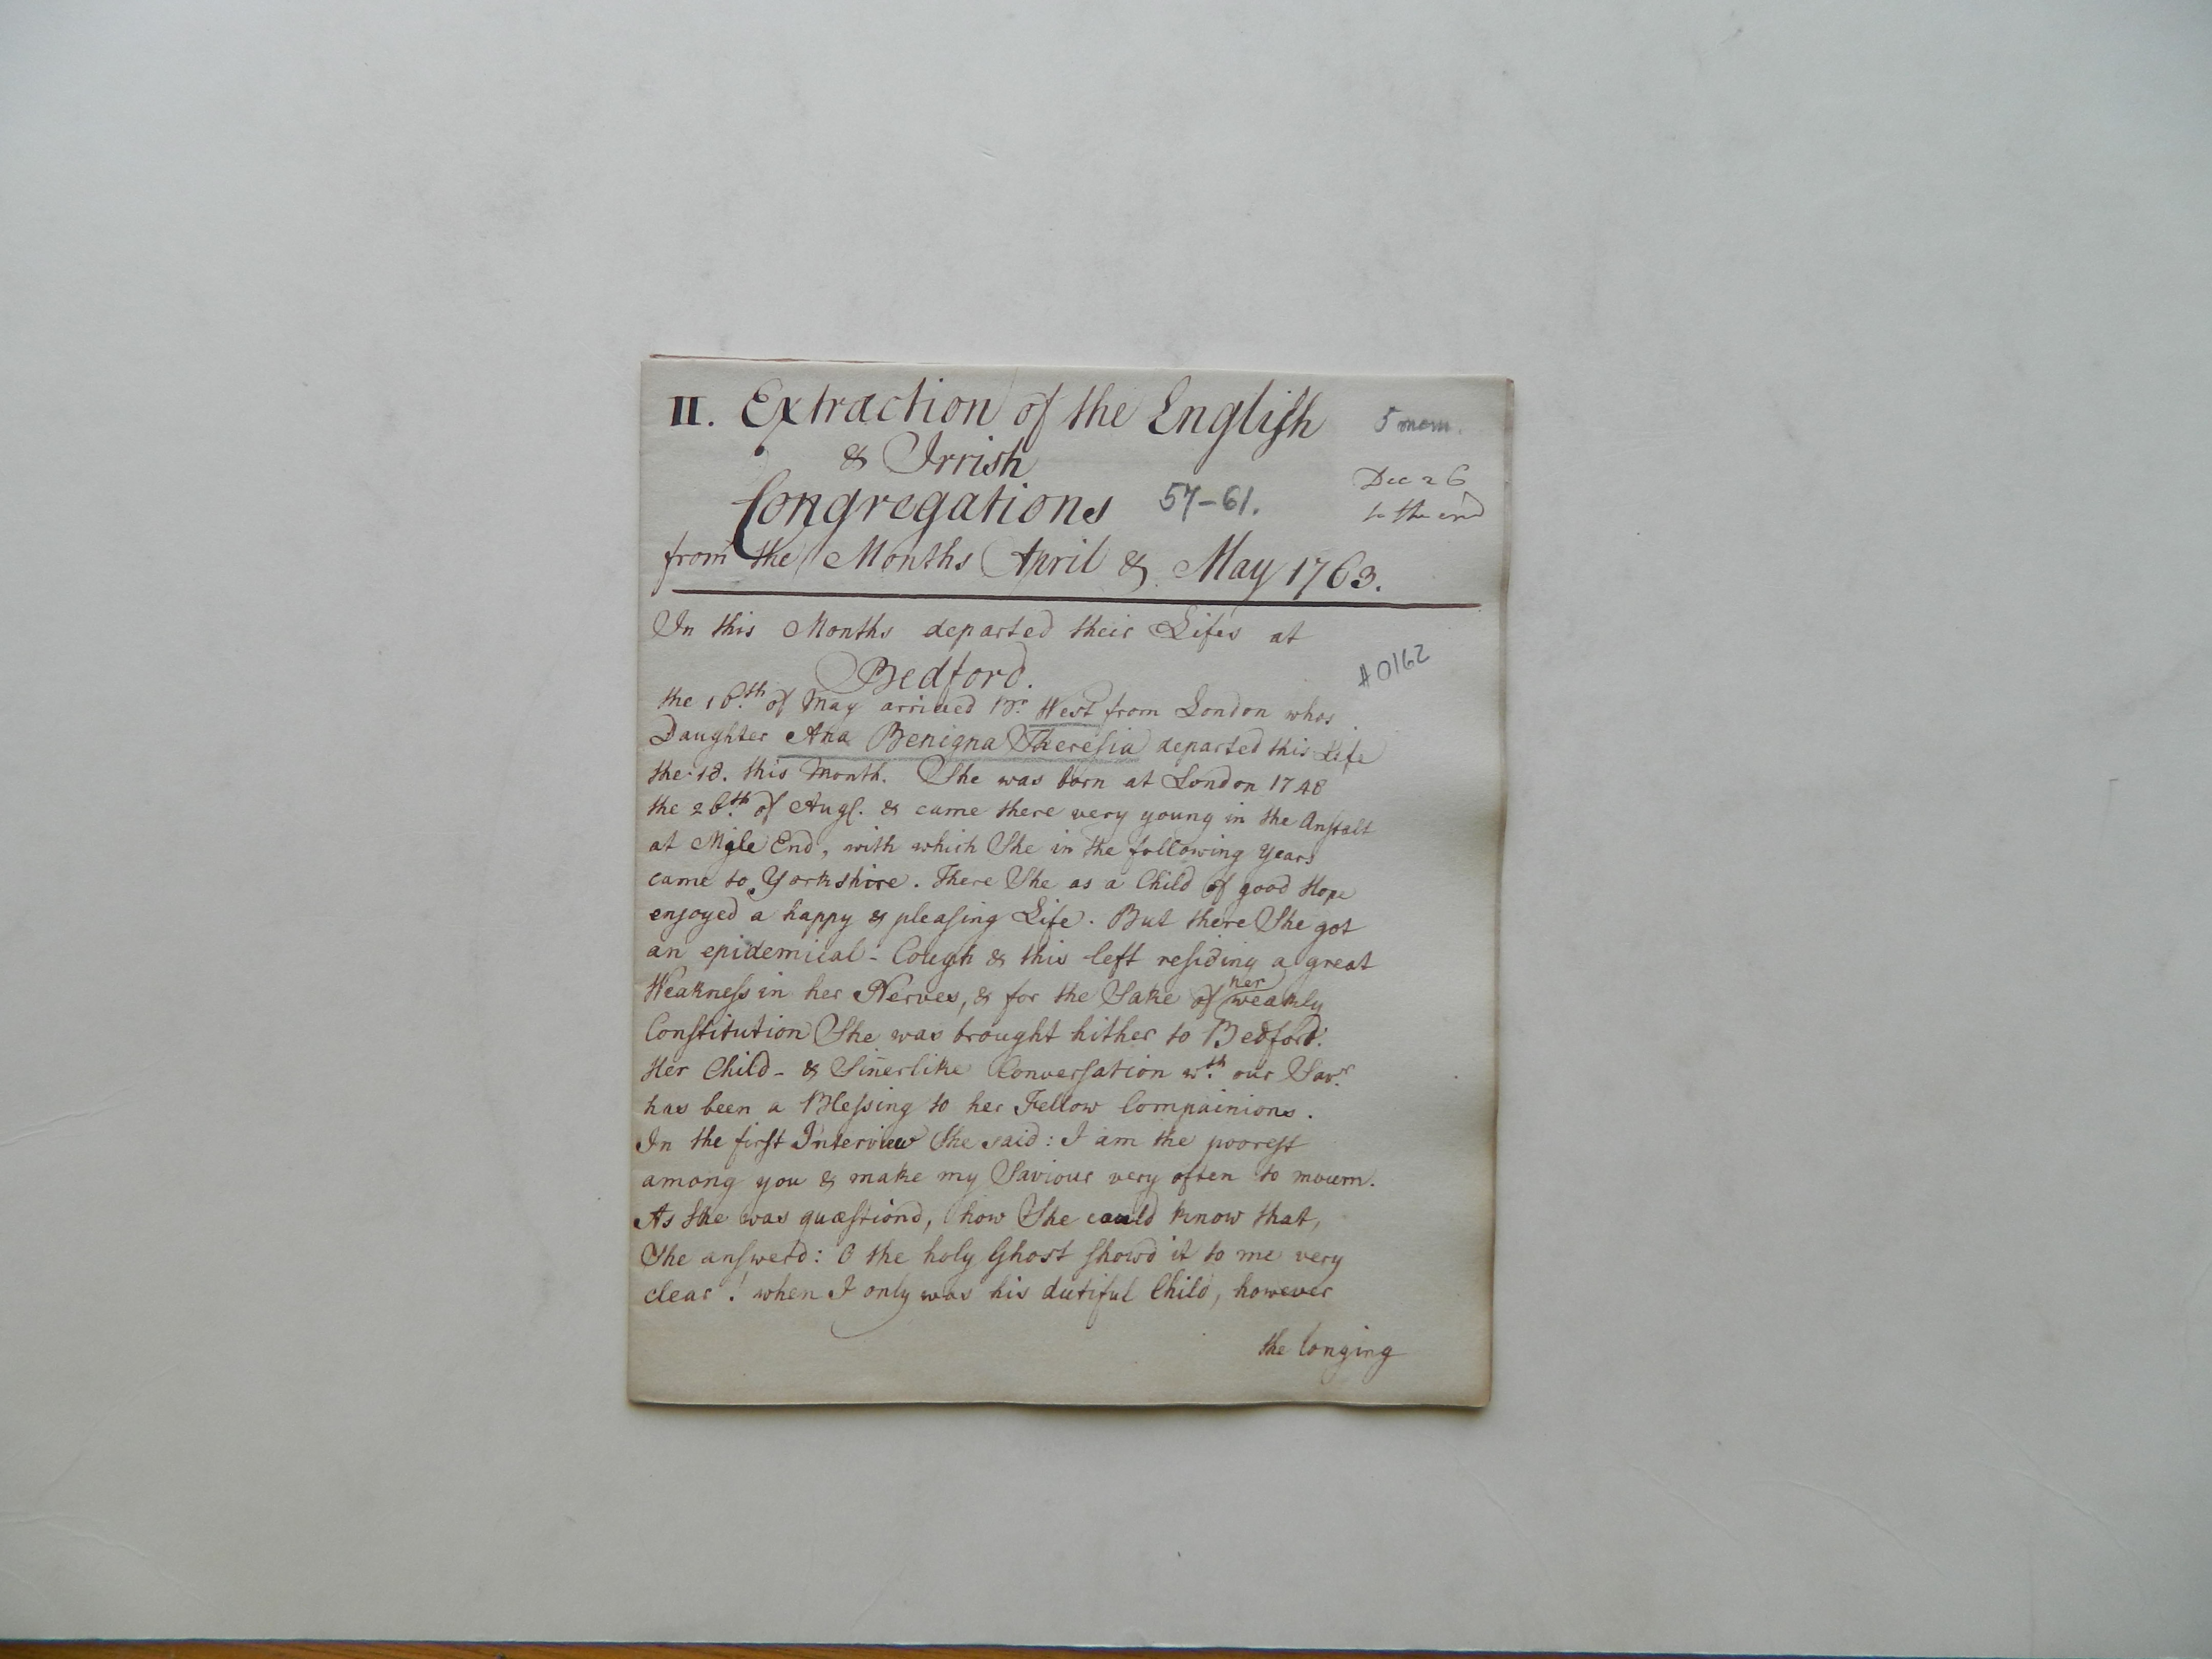 II. Extraction of the English
5 mem.
& Irrish
Dec 26
Congregations 57-61.
to the end
from the Months April & May 1763.
In this Months departed their Lifes at
#0162
Bedford.
the 16.th of May arrived Br. West from London whos
Daughter Ana Benigna Theresia departed this Life
the 18. this Month. She was born at London 1748
the 26.th of Aug. & came there very young in the Anstalt
at Mile End, with which She in the following Years
came to Yorkshire. There She as a Child of good Hope
enjoyed a happy & pleasing Life. But there She got
an epidemical-Cough & this left residing a great
Weakness in her Nerves, & for the Sake of her weakly
Constitution She was brought hither to Bedford.
Her Child- & Siñerlike Conversation w.th our Sav.r
has been a Blessing to her Fellow Compainions.
In the first Interview She said: I am the poorest
among you & make my Saviour very often to mourn.
As She was quæstiond, how She could know that,
She answerd: O the holy Ghost showd it to me very
clear! when I only was his dutiful Child, however
the longing